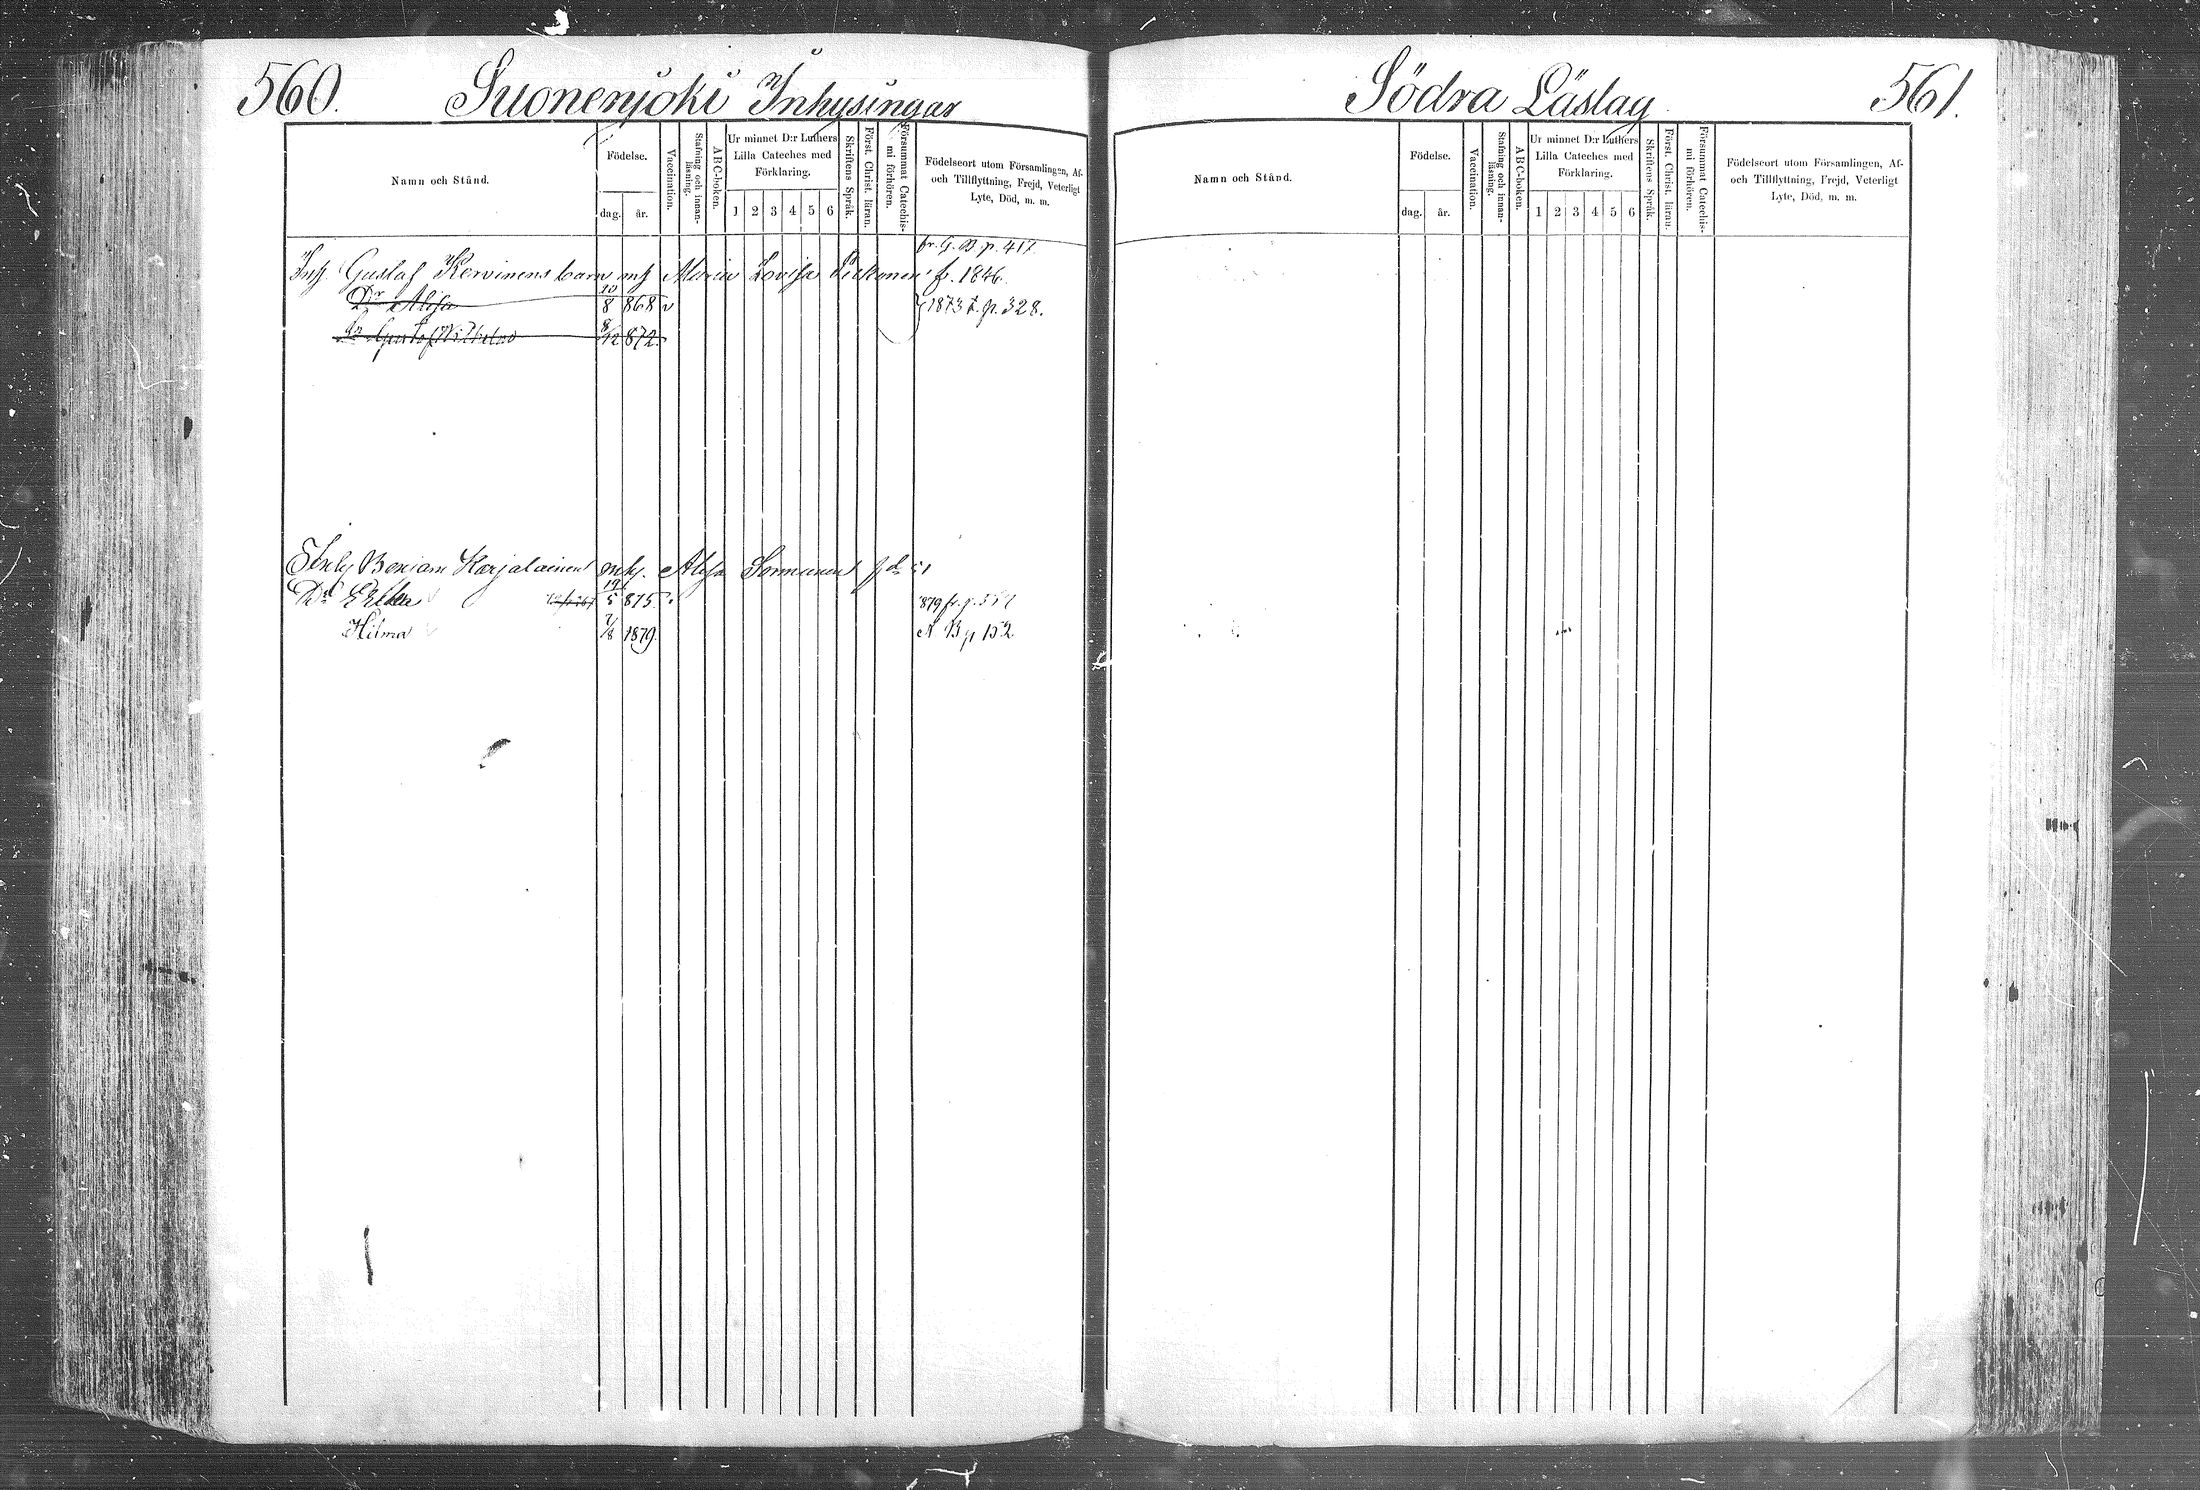 560. Suonenjoki Inhysingar
Namn och Stånd.
Födelse.
dag. år.
Vaccination.
Stafning och innanläsning.
ABC-boken.
Ur minnet D:r Luthers
Lilla Cateches med
Förklaring.
1 2 3 4 5 6
Skriftens Språk.
Först. Christ. läran.
Försummat Catechismi förhören.
Födelseort utom Församlingen, Af-
och Tillflyttning, Frejd, Veterligt
Lyte, Död, m. m.
fr. G. B. p. 417
Inh. Gustaf Kervinens barn mh Maria Lovisa f. 1846.
Dr Alisa 10/8 868 v 1873 t. p. 328.
Gustaf Wilhelm 8/12 872.
Benjam Karjalainen mh. Alisa Sormunen f d 51
Dr 19/5 875. 879 fr. p.
Hilma 7/8 1879. N B p 152
Södra Läslag 561.
Namn och Stånd.
Födelse.
dag. år.
Vaccination.
Stafning och innanläsning.
ABC-boken.
Ur minnet D:r Luthers
Lilla Cateches med
Förklaring.
1 2 3 4 5 6
Skriftens Språk.
Först. Christ. läran.
Försummat Catechismi förhören.
Födelseort utom Församlingen, Af-
och Tillflyttning, Frejd, Veterligt
Lyte, Död, m. m.